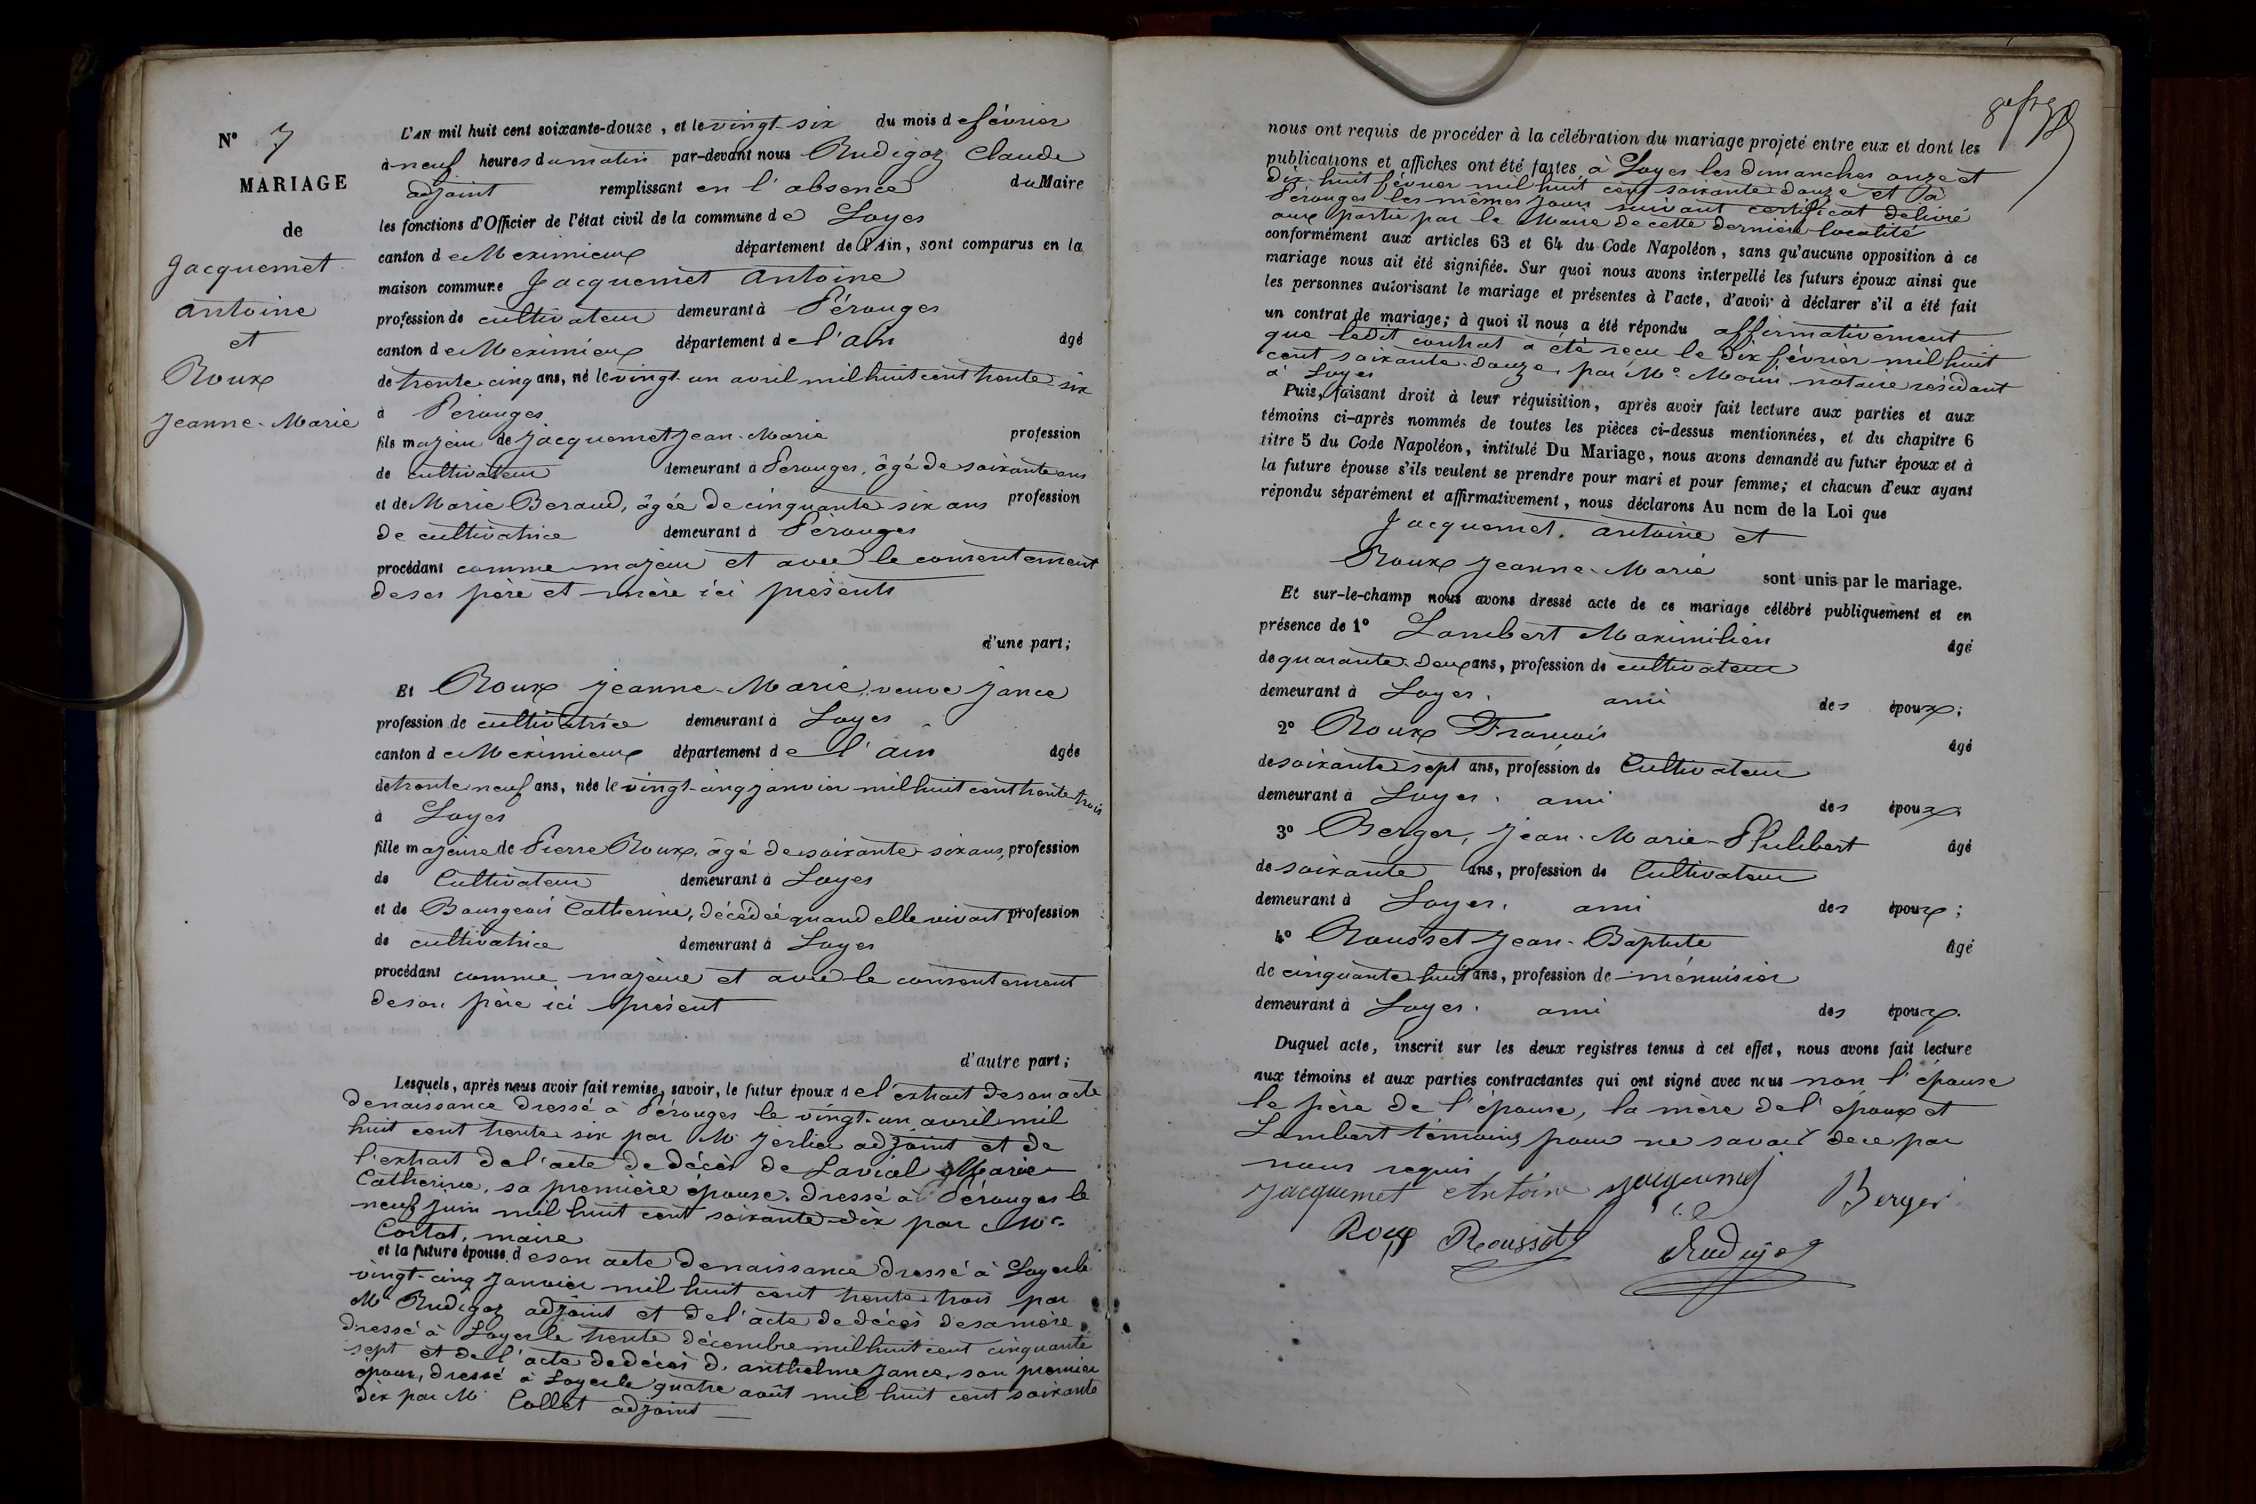 N° 7
MARIAGE
de
Jacquemet
Antoine
et
Roux
Jeanne-Marie
L'AN mil huit cent soixante-douze, et le vingt-six du mois de février
à neuf heures du matin par-devant nous Rudigoz Claude
adjoint remplissant en l'absence du Maire
les fonctions d'Officier de l'état civil de la commune de Loyes
canton de Meximieux département de l'Ain, sont comparus en la
maison commune Jacquemet Antoine
profession de cultivateur demeurant à Pérouges
canton de Meximieux département de l'Ain âgé
de trente-cinq ans, né le vingt-un avril mil huit cent trente-six
à Pérouges
fils majeur de Jacquemet Jean-Marie profession
de cultivateur demeurant à Pérouges, âgé de soixante ans
et de Marie Beraud, âgée de cinquante six ans profession
de cultivatrice demeurant à Pérouges
procédant comme majeur et avec le consentement
de ses père et mère ici présents
d'une part;
Et Roux Jeanne-Marie, veuve Jance
profession de cultivatrice demeurant à Loyes
canton de Meximieux département de l'ain âgée
de trente neuf ans, née le vingt-cinq janvier mil huit cent trente-trois
à Loyes
fille majeure de Pierre Roux, âgé de soixante-six ans, profession
de Cultivateur demeurant à Loyes
et de Bourgeois Catherine, décédée quand elle vivait profession
de cultivatrice demeurant à Loyes
procédant comme majeure et avec le consentement
de son père ici présent
d'autre part;
Lesquels, après nous avoir fait remise, savoir, le futur époux de l'extrait de son acte
de naissance dressé à Pérouges le vingt-un avril mil
huit cent trente-six par M. Jerlier adjoint et de
l'extrait de l'acte de décès de Marie
Catherine, sa première épouse, dressé à Pérouges le
neuf juin mil huit cent soixante-dix par Mr
maire
et la future épouse de son acte de naissance dressé à Loyes le
vingt-cinq janvier mil huit cent trente trois par
Mr Rudigoz adjoint et de l'acte de décès de sa mère
dressé à Loyes le trente décembre mil huit cent cinquante
sept et de l'acte de décès d'anthelme Jance, son premier
époux, dressé à Loyes le quatre août mil huit cent soixante
dix par M. Collet adjoint
nous ont requis de procéder à la célébration du mariage projeté entre eux et dont les
publications et affiches ont été faites à Loyes les dimanches onze et
dix-huit février mil huit cent soixante-douze et à
Pérouges les mêmes jours suivant certificat délivré
aux parties par le Maire de cette dernière localité
conformément aux articles 63 et 64 du Code Napoléon, sans qu'aucune opposition à ce
mariage nous ait été signifiée. Sur quoi nous avons interpellé les futurs époux ainsi que
les personnes autorisant le mariage et présentes à l'acte, d'avoir à déclarer s'il a été fait
un contrat de mariage; à quoi il nous a été répondu affirmativement
que ledit contrat a été reçu le dix février mil huit
cent soixante-douze, par Me notaire résidant
à Loyes
Puis, faisant droit à leur réquisition, après avoir fait lecture aux parties et aux
témoins ci-après nommés de toutes les pièces ci-dessus mentionnées, et du chapitre 6
titre 5 du Code Napoléon, intitulé Du Mariage, nous avons demandé au futur époux et à
la future épouse s'ils veulent se prendre pour mari et pour femme; et chacun d'eux ayant
répondu séparément et affirmativement, nous déclarons Au nom de la Loi que
Jacquemet, Antoine et
Roux Jeanne-Marie sont unis par le mariage.
Et sur-le-champ nous avons dressé acte de ce mariage célébré publiquement et en
présence de 1° Lambert Maximilien âgé
de quarante-deux ans, profession de cultivateur
demeurant à Loyes, ami des époux;
2° Roux François âgé
de soixante-sept ans, profession de Cultivateur
demeurant à Loyes, ami des époux
3° Berger, Jean-Marie-Philibert âgé
de soixante ans, profession de Cultivateur
demeurant à Loyes, ami des époux;
4° Rousset Jean-Baptiste âgé
de cinquante-huit ans, profession de menuisier
demeurant à Loyes, ami des époux.
Duquel acte, inscrit sur les deux registres tenus à cet effet, nous avons fait lecture
aux témoins et aux parties contractantes qui ont signé avec nous non l'épouse
le père de l'épouse, la mère de l'époux et
Lambert témoins pour ne savoir de ce par
nous requis
Jacquemet Antoine Jacquemet Berger
Roux Rousset Rudigoz